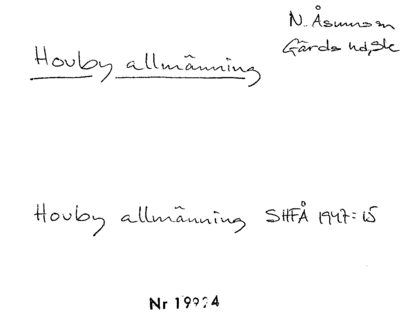 N. Åsumsen
Gärds hd, Sk
Houby allmänning
Houby allmänning SHFÅ 1947:15
Nr 19994